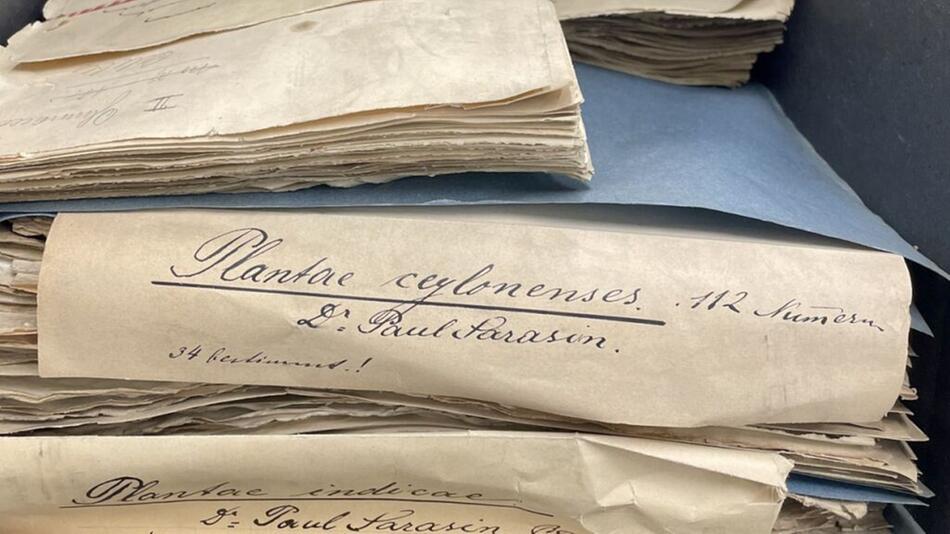 II
Plantae ceylonenses. . 112 Numern
Dr. Paul Sarasin.
34 bestimmt.!
Plantae indicae
Dr. Paul Sarasin